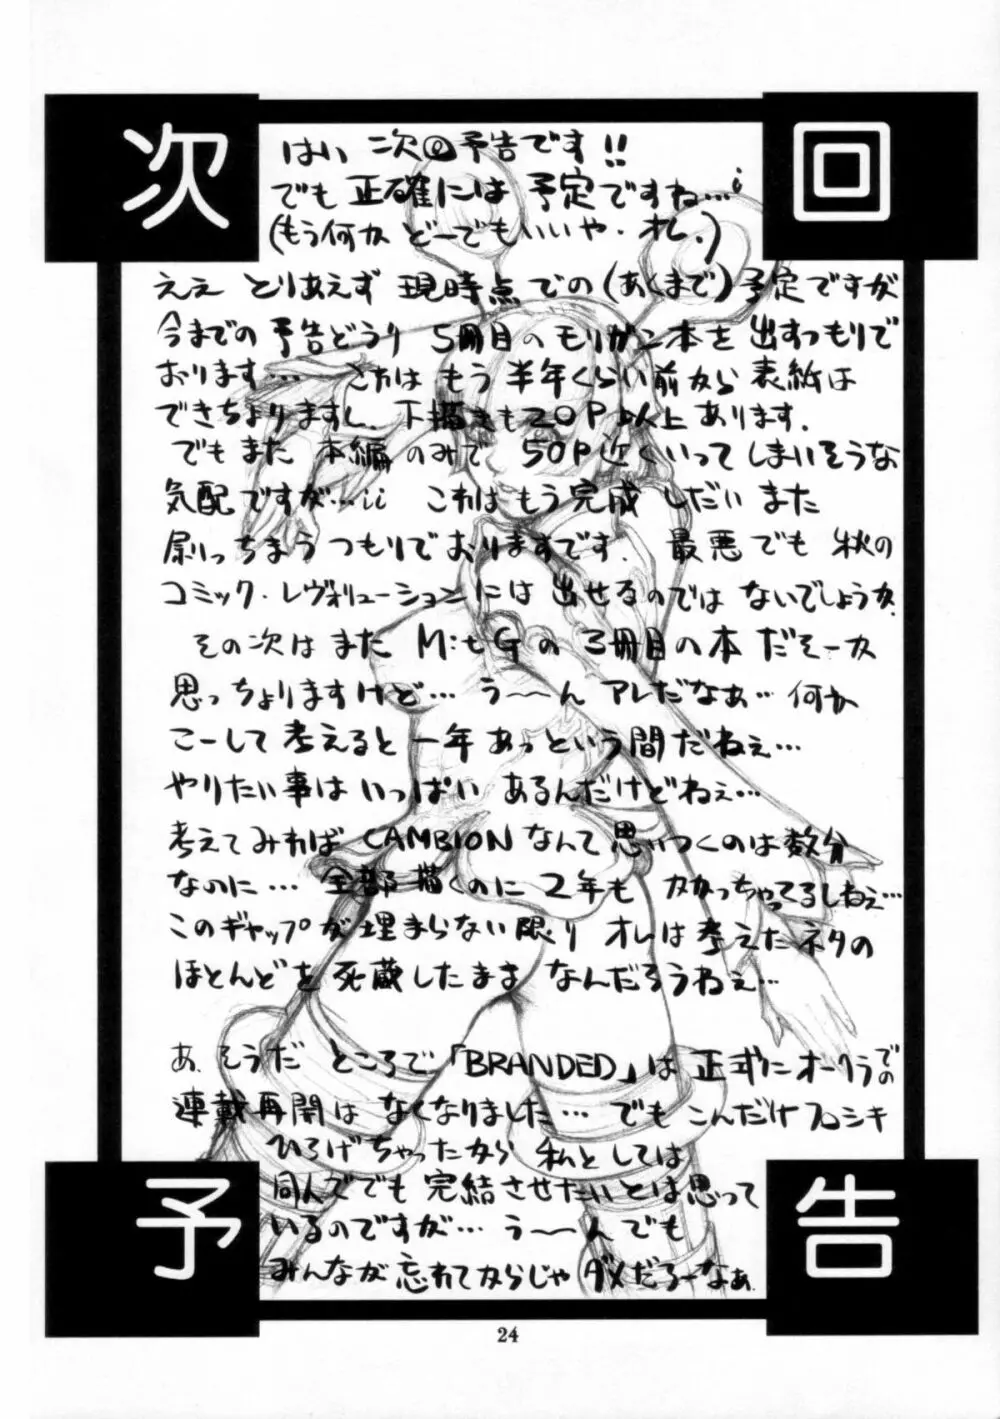 次回
はい 次の予告です!!
でも 正確には 予定ですね…;
(もう何か どーでもいいや・オレ.)
ええ とりあえず 現時点での(あくまで)予定ですが
今までの 予告どうり 5冊目のモリガン本を 出すつもりで
おります… これは もう 半年くらい前から 表紙は
できちょりますし、下描きも20P以上あります.
でもまた 本編のみで 50P近くいってしまいそうな
気配ですが…;; これはもう完成 しだい また
刷っちまうつもりでおりますです. 最悪でも 秋の
コミック・レヴォリューションには 出せるのでは ないでしょうか.
その次は また M:tGの 3冊目の本 だそーか
思っちょりますけど… う〜〜ん アレだなぁ… 何か
こーして考えると 一年あっという間だねぇ…
やりたい事は いっぱい あるんだけどねぇ…
考えてみれば CAMBIONなんて 思いつくのは数分
なのに… 全部描くのに 2年も かかっちゃってるしねぇ…
このギャップが埋まらない限り オレは考えたネタの
ほとんどを 死蔵したまま なんだろうねぇ…
あ、そうだ ところで「BRANDED」は 正式にオークラでの
連載再開は なくなりました… でも こんだけフロシキ
ひろげちゃったから 私としては
同人ででも 完結させたいとは思って
いるのですが… う〜〜ん でも
みんなが忘れてからじゃ ダメだろーなぁ.
予告
24